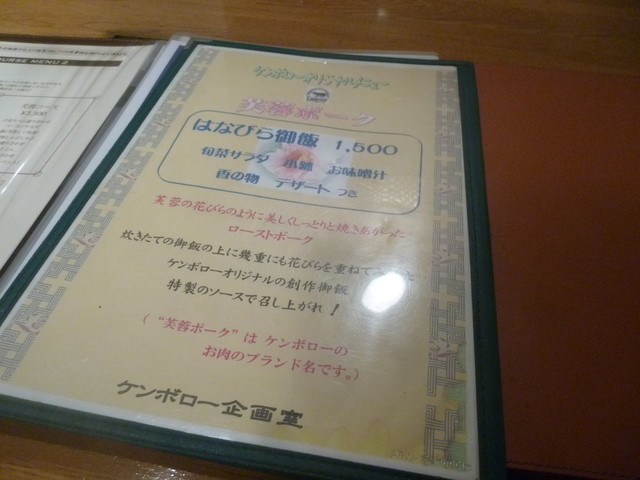 URSE MENU 2
ケンボローオリジナルメニュー
芙蓉ポーク
はなびら御飯 1,500
旬菜サラダ 小鉢 お味噌汁
香の物 デザート つき
芙蓉の花びらのように美しくしっとりと焼きあがった
ローストポーク
炊きたての御飯の上に幾重にも花びらを重ねて
ケンボローオリジナルの創作御飯
特製のソースで召し上がれ！
( “芙蓉ポーク” は ケンボローの
お肉のブランド名です。)
ケンボロー企画室